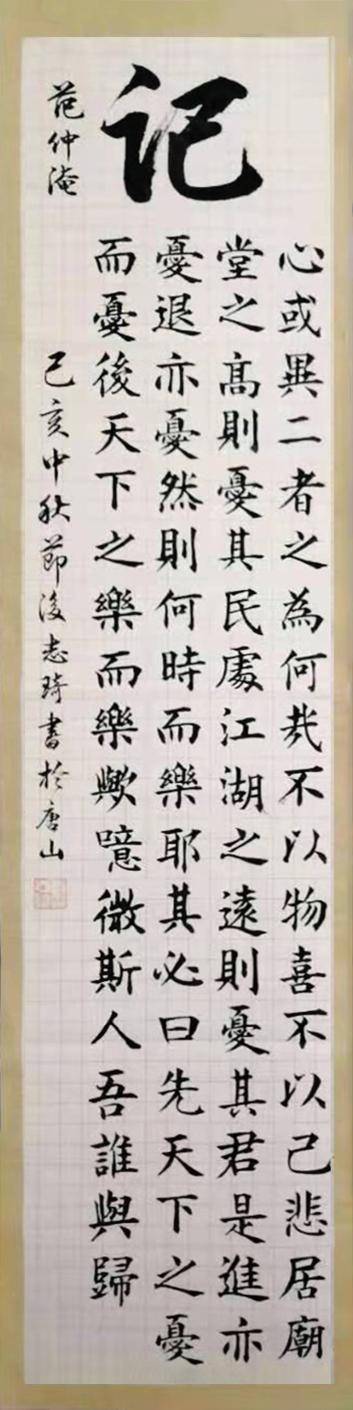 记
心或異二者之為何哉不以物喜不以己悲居廟
堂之髙則憂其民處江湖之遠則憂其君是進亦
憂退亦憂然則何時而樂耶其必曰先天下之憂
而憂後天下之樂而樂歟噫微斯人吾誰與歸
范仲淹
己亥中秋節後志琦書於唐山